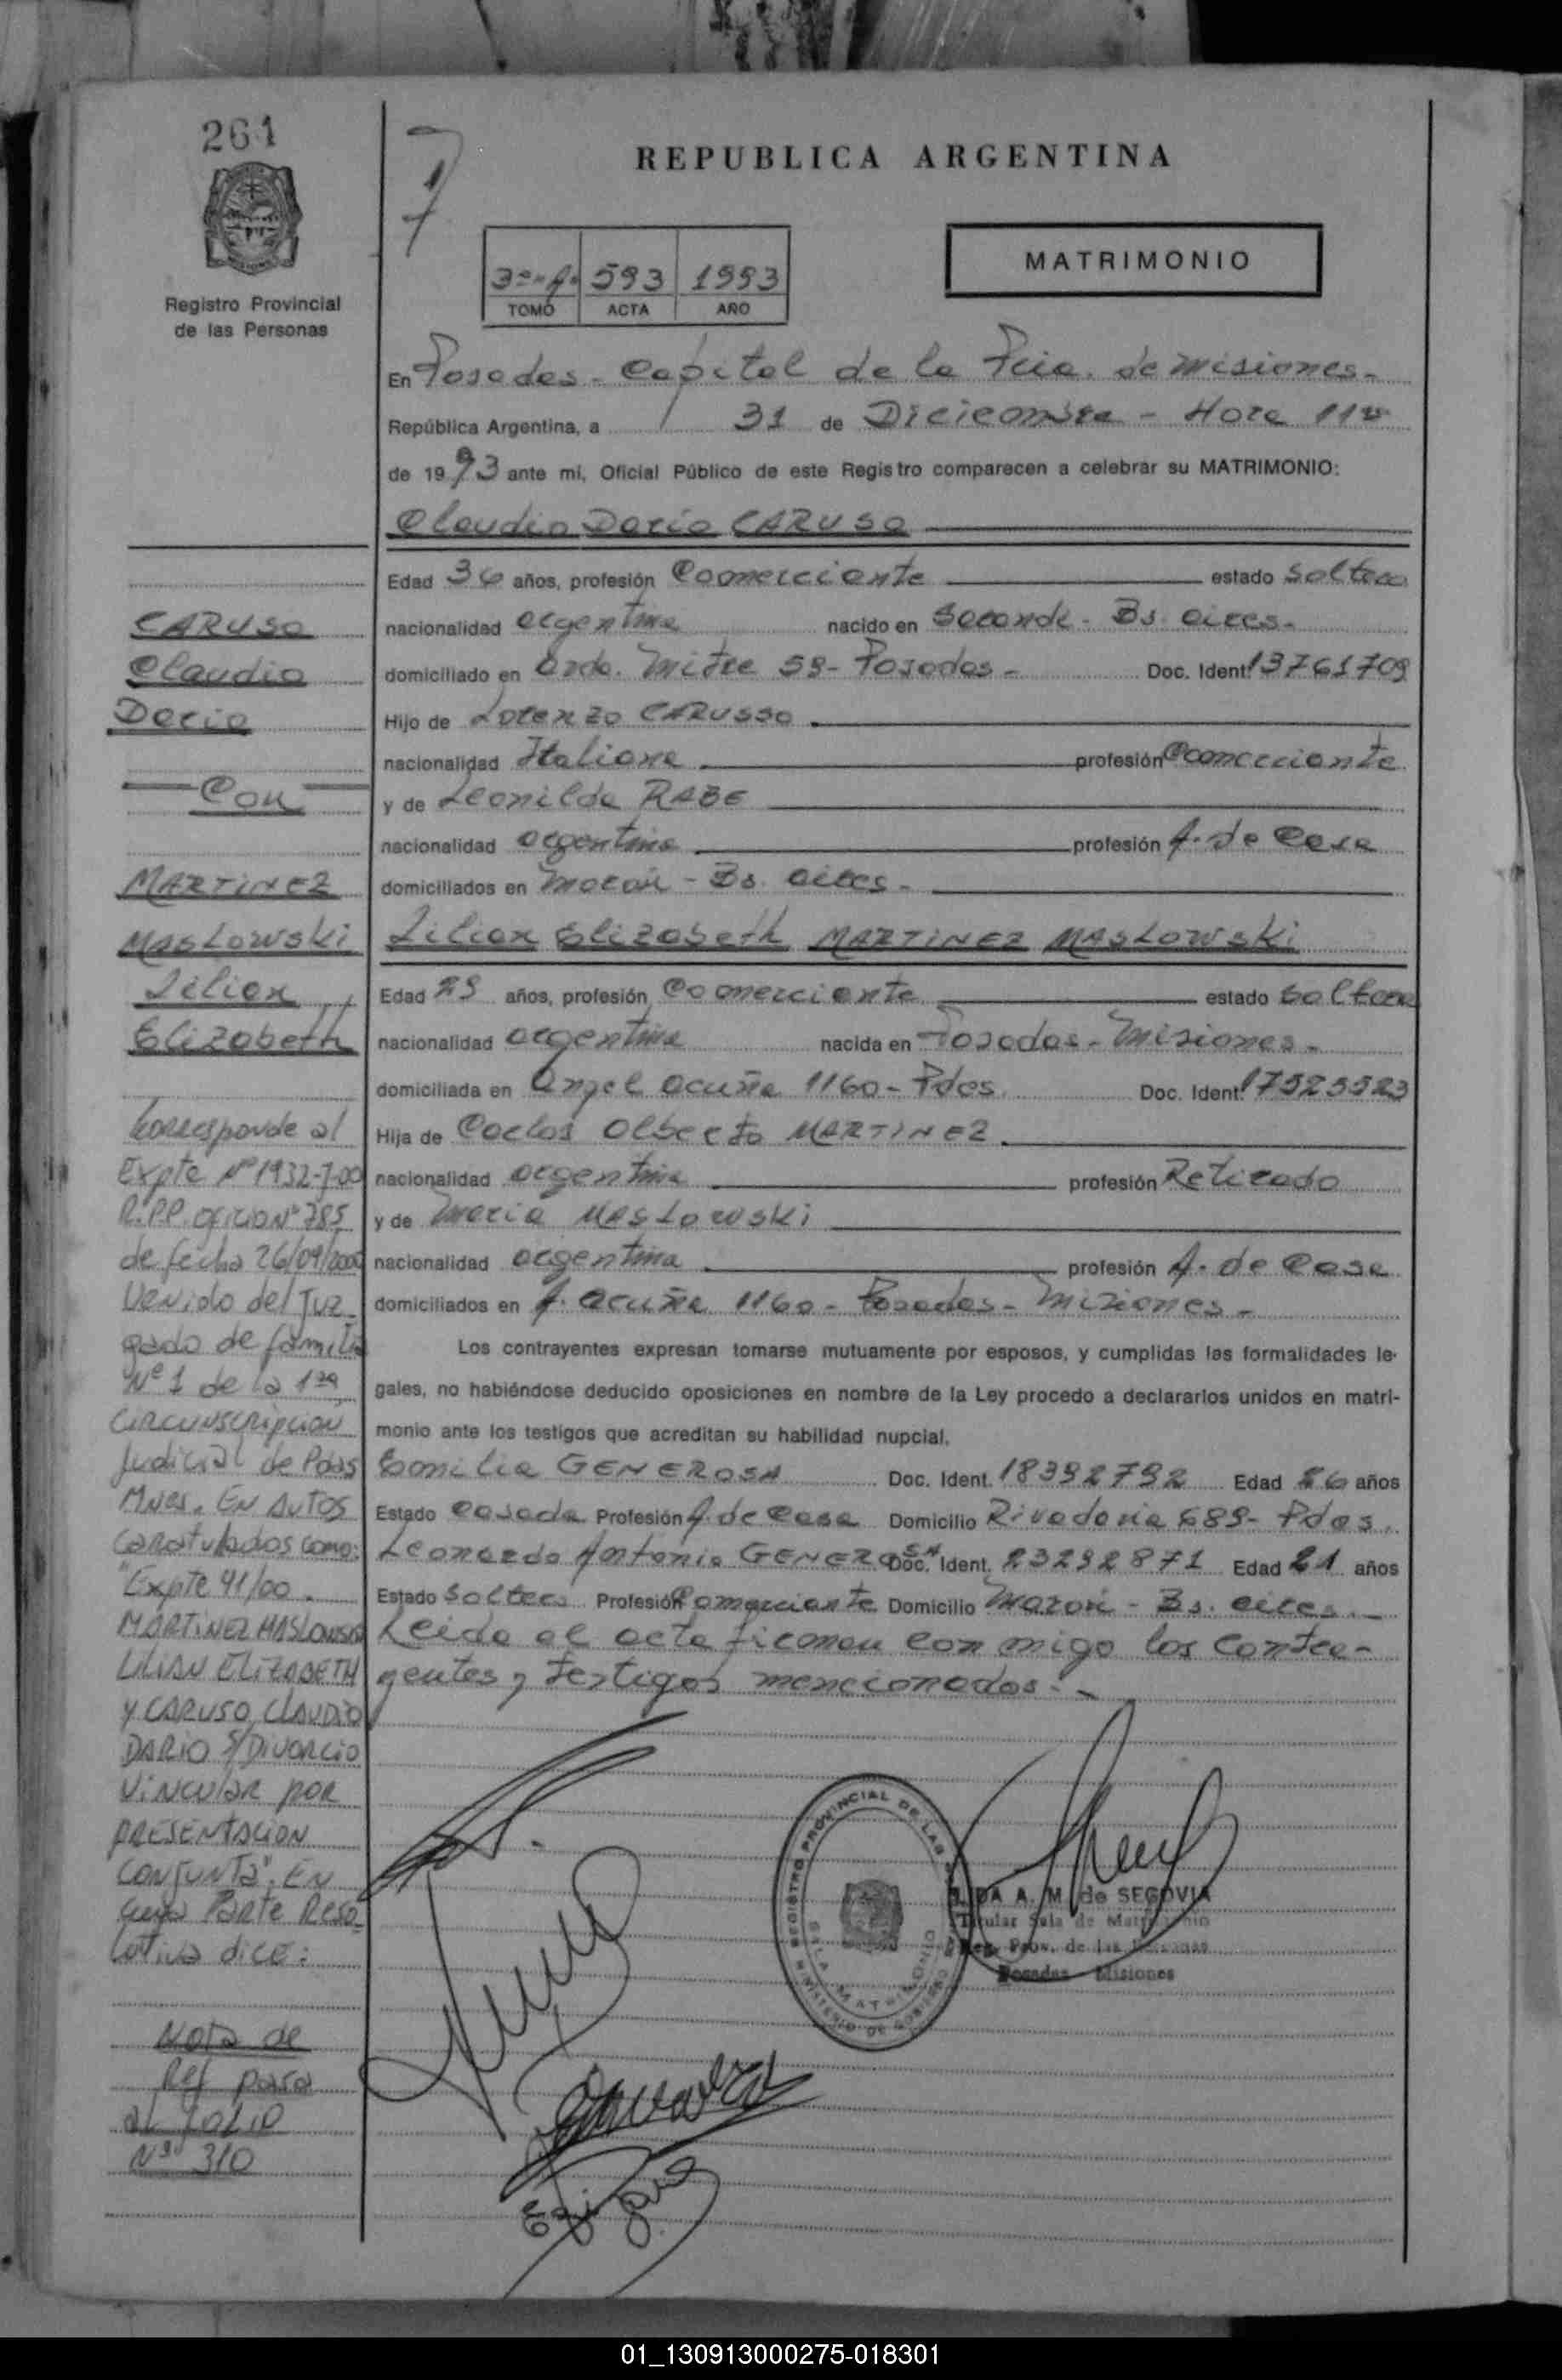 261
Registro Provincial
de las Personas
REPUBLICA ARGENTINA
MATRIMONIO
3º-A. 593 1993
TOMO ACTA AÑO
En Posadas - Capital de la Pcia. de Misiones -
República Argentina, a 31 de Diciembre - Hora 11
de 1993 ante mí, Oficial Público de este Registro comparecen a celebrar su MATRIMONIO:
Claudio Dario CARUSO
Edad 36 años, profesión Comerciante estado Soltero
nacionalidad argentina nacido en Bs. aires -
domiciliado en Mitre 59 - Posadas - Doc. Ident. 13761709
Hijo de Lorenzo CARUSSO
nacionalidad Italiana profesión Comerciante
y de Leonilda RABE
nacionalidad argentina profesión A. de Casa
domiciliados en Morón - Bs. aires -
Lilian Elizabeth MARTINEZ MASLOWSKI
Edad 29 años, profesión Comerciante estado Soltera
nacionalidad argentina nacida en Posadas - Misiones -
domiciliada en Angel acuña 1160 - Pdas. Doc. Ident. 17525523
Hija de Carlos Alberto MARTINEZ
nacionalidad argentina profesión Retirado
y de Maria MASLOWSKI
nacionalidad argentina profesión A. de Casa
domiciliados en A. acuña 1160 - Posadas - Misiones -
Los contrayentes expresan tomarse mutuamente por esposos, y cumplidas las formalidades le-
gales, no habiéndose deducido oposiciones en nombre de la Ley procedo a declararlos unidos en matri-
monio ante los testigos que acreditan su habilidad nupcial.
Emilia GENEROSA Doc. Ident. 18392792 Edad 26 años
Estado Casada Profesión A. de Casa Domicilio Rivadavia 689 - Pdas.
Leonardo Antonio GENEROSA Doc. Ident. 23292871 Edad 21 años
Estado Soltero Profesión Comerciante Domicilio Morón - Bs. aires. -
Leida el acta firman con migo los contra-
yentes y testigos mencionados. -
CARUSO
Claudio
Dario
Con
MARTINEZ
MASLOWSKI
Lilian
Elizabeth
Corresponde al
Expte Nº 1932-J-00
R.P.P. oficio Nº 785
de fecha 26/09/2000
Venido del Juz-
gado de familia
Nº 1 de la 1ra
Circunscripcion
Judicial de Pdas
Mnes. EN AUTOS
Caratulados como:
"Expte 41/00.
MARTINEZ MASLOWSKI
LILIAN ELIZABETH
Y CARUSO, CLAUDIO
DARIO S/ DIVORCIO
VINCULAR POR
PRESENTACION
CONJUNTA". EN
cuya Parte Reso-
lutiva dice:
Nota de
Ref para
al folio
Nº 310
REGISTRO PROVINCIAL DE LAS
SALA MATRIMONIO
MINISTERIO DE GOBIERNO
A. M. de SEGOVIA
Titular Sala de Matrimonio
Reg. Prov. de las Personas
Posadas - Misiones
01_130913000275-018301